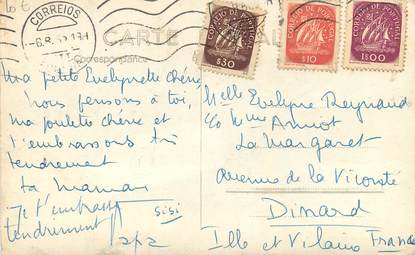 10 €
CORREIOS
-6.8.52.19-1
CARTE POSTALE
Correspondance
CORREIO DE PORTUGAL
$30
CORREIO DE PORTUGAL
$10
CORREIO DE PORTUGAL
1$00
Ma petite Evelynette Chérie
Nous pensons à toi,
ma poulette chérie et
t'embrassons très
tendrement
ta Maman
Je t'embrasse
tendrement
sisi
Melle Evelyne Reynaud
Mme Amiot
La Margaret
Avenue de la Vicomté
Dinard
Ille et Vilaine France